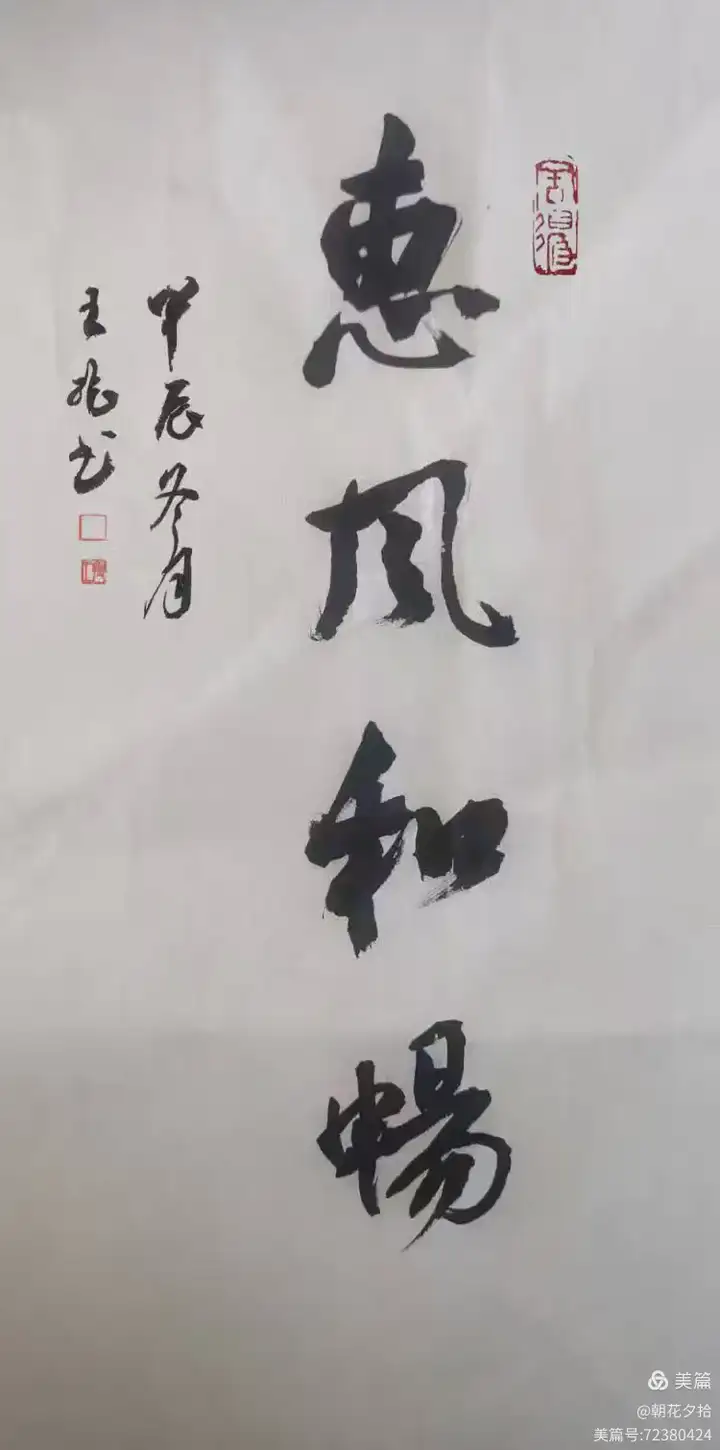 惠风和畅
甲辰冬月
王兆书
美篇
@朝花夕拾
美篇号:72380424